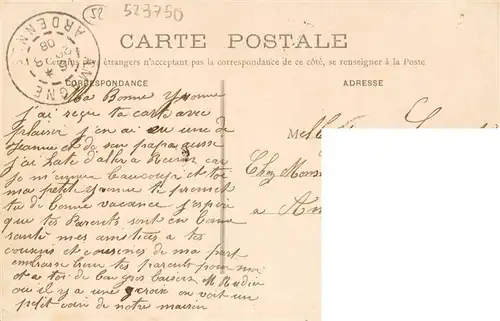 52 523750
CARTE POSTALE
étrangers n'acceptant pas la correspondance de ce côté, se renseigner à la Poste.
CORRESPONDANCE
ADRESSE
ARDENNES
08
Ma Bonne Yvonne
j'ai reçu ta carte avec
plaisir j'en ai eu une de
Jeanne et de son papa aussi
j'ai hate d'aller a Reims car
je m'ennuie beaucoup et toi
ma petit Yvonne te promet
tu de bonne vacance j'espère
que tes Parents sont en bonne
santé mes amitiées a tes
cousins et cousines de ma part
embrasse bien tes parents pour moi
et a toi de bau gros baisers M
ou il y a une croix on voit un
petit coin de notre maison
Mlle
Chez Mons
a